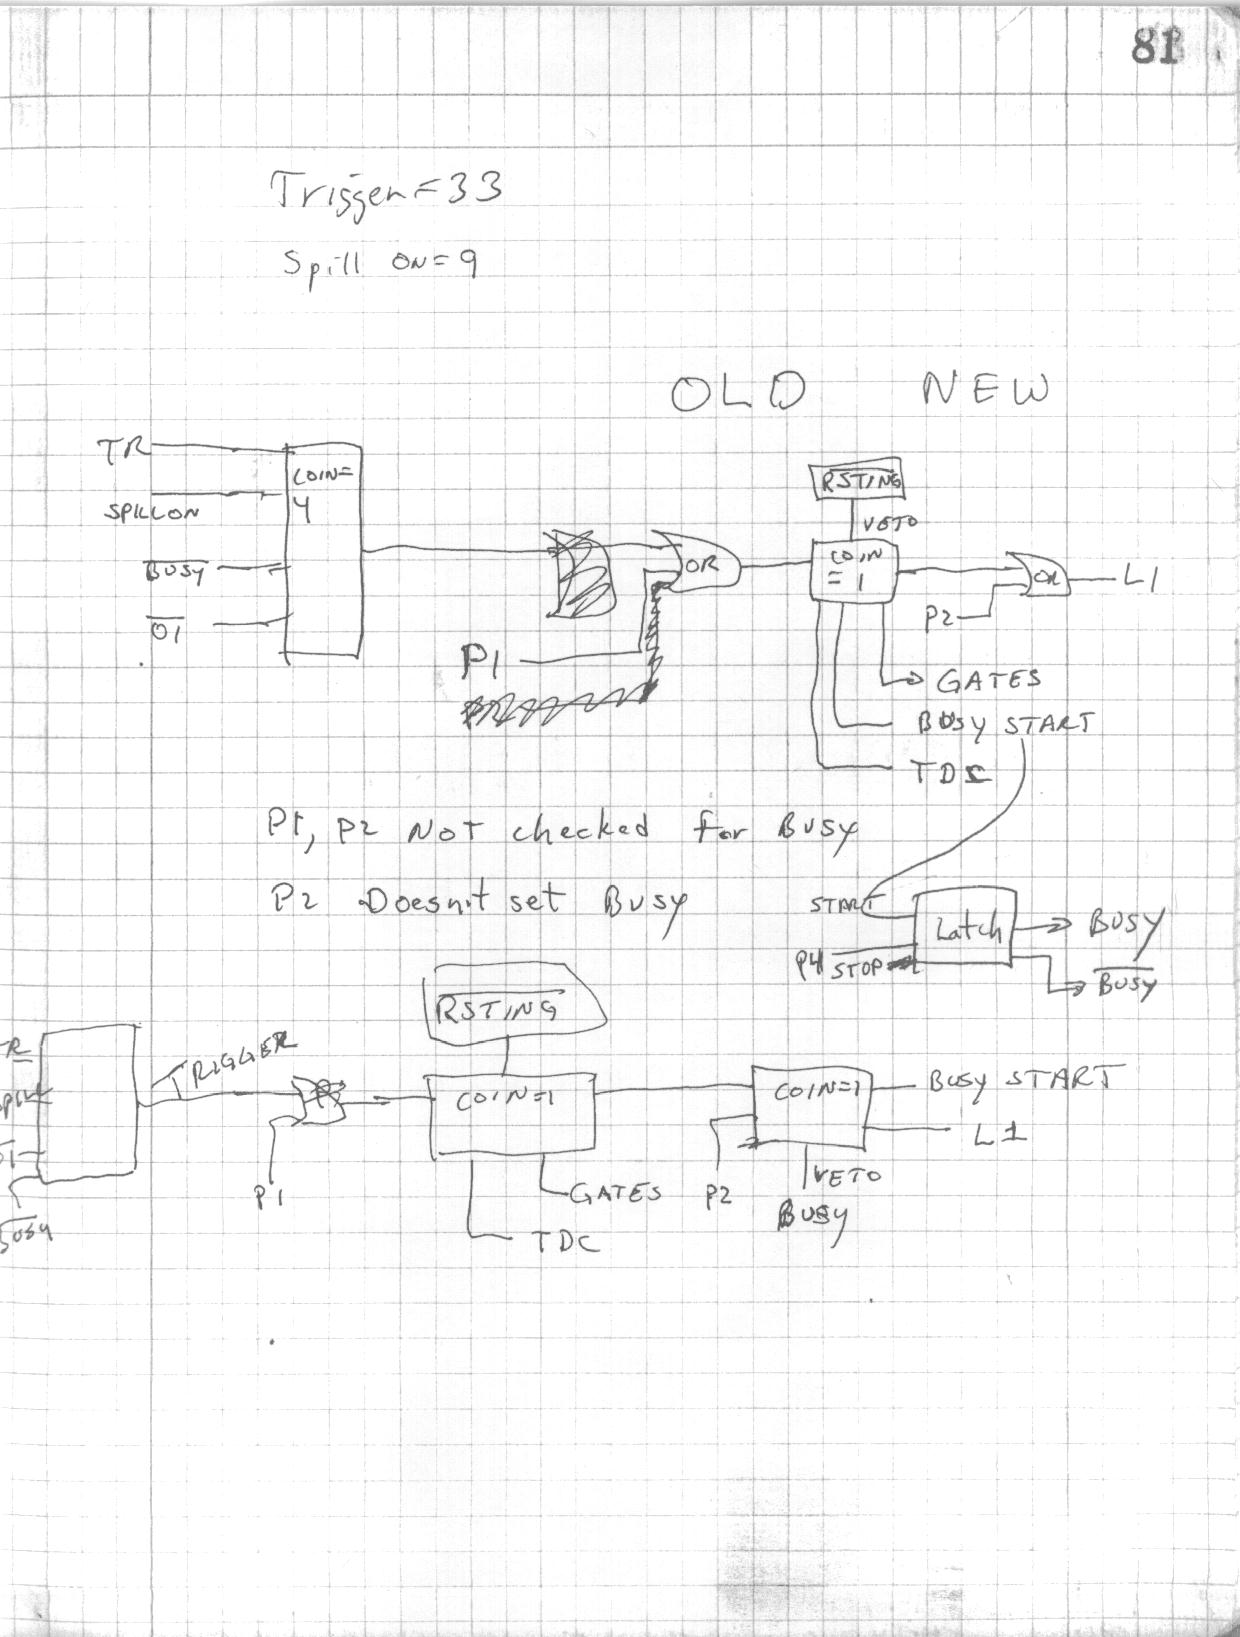 81
Trigger = 33
Spill ON = 9
OLD NEW
TR
COIN=
4
SPILLON
BUSY
OI
RSTING
VETO
OR
COIN
= 1
OR
L1
P2
P1
GATES
BUSY START
TDC
P1, P2 NOT checked for BUSY
P2 Doesn't set BUSY
START
Latch
BUSY
P4 STOP
BUSY
RSTING
TRIGGER
COIN=1
COIN=1
BUSY START
L1
P1
GATES
P2
VETO
BUSY
TDC